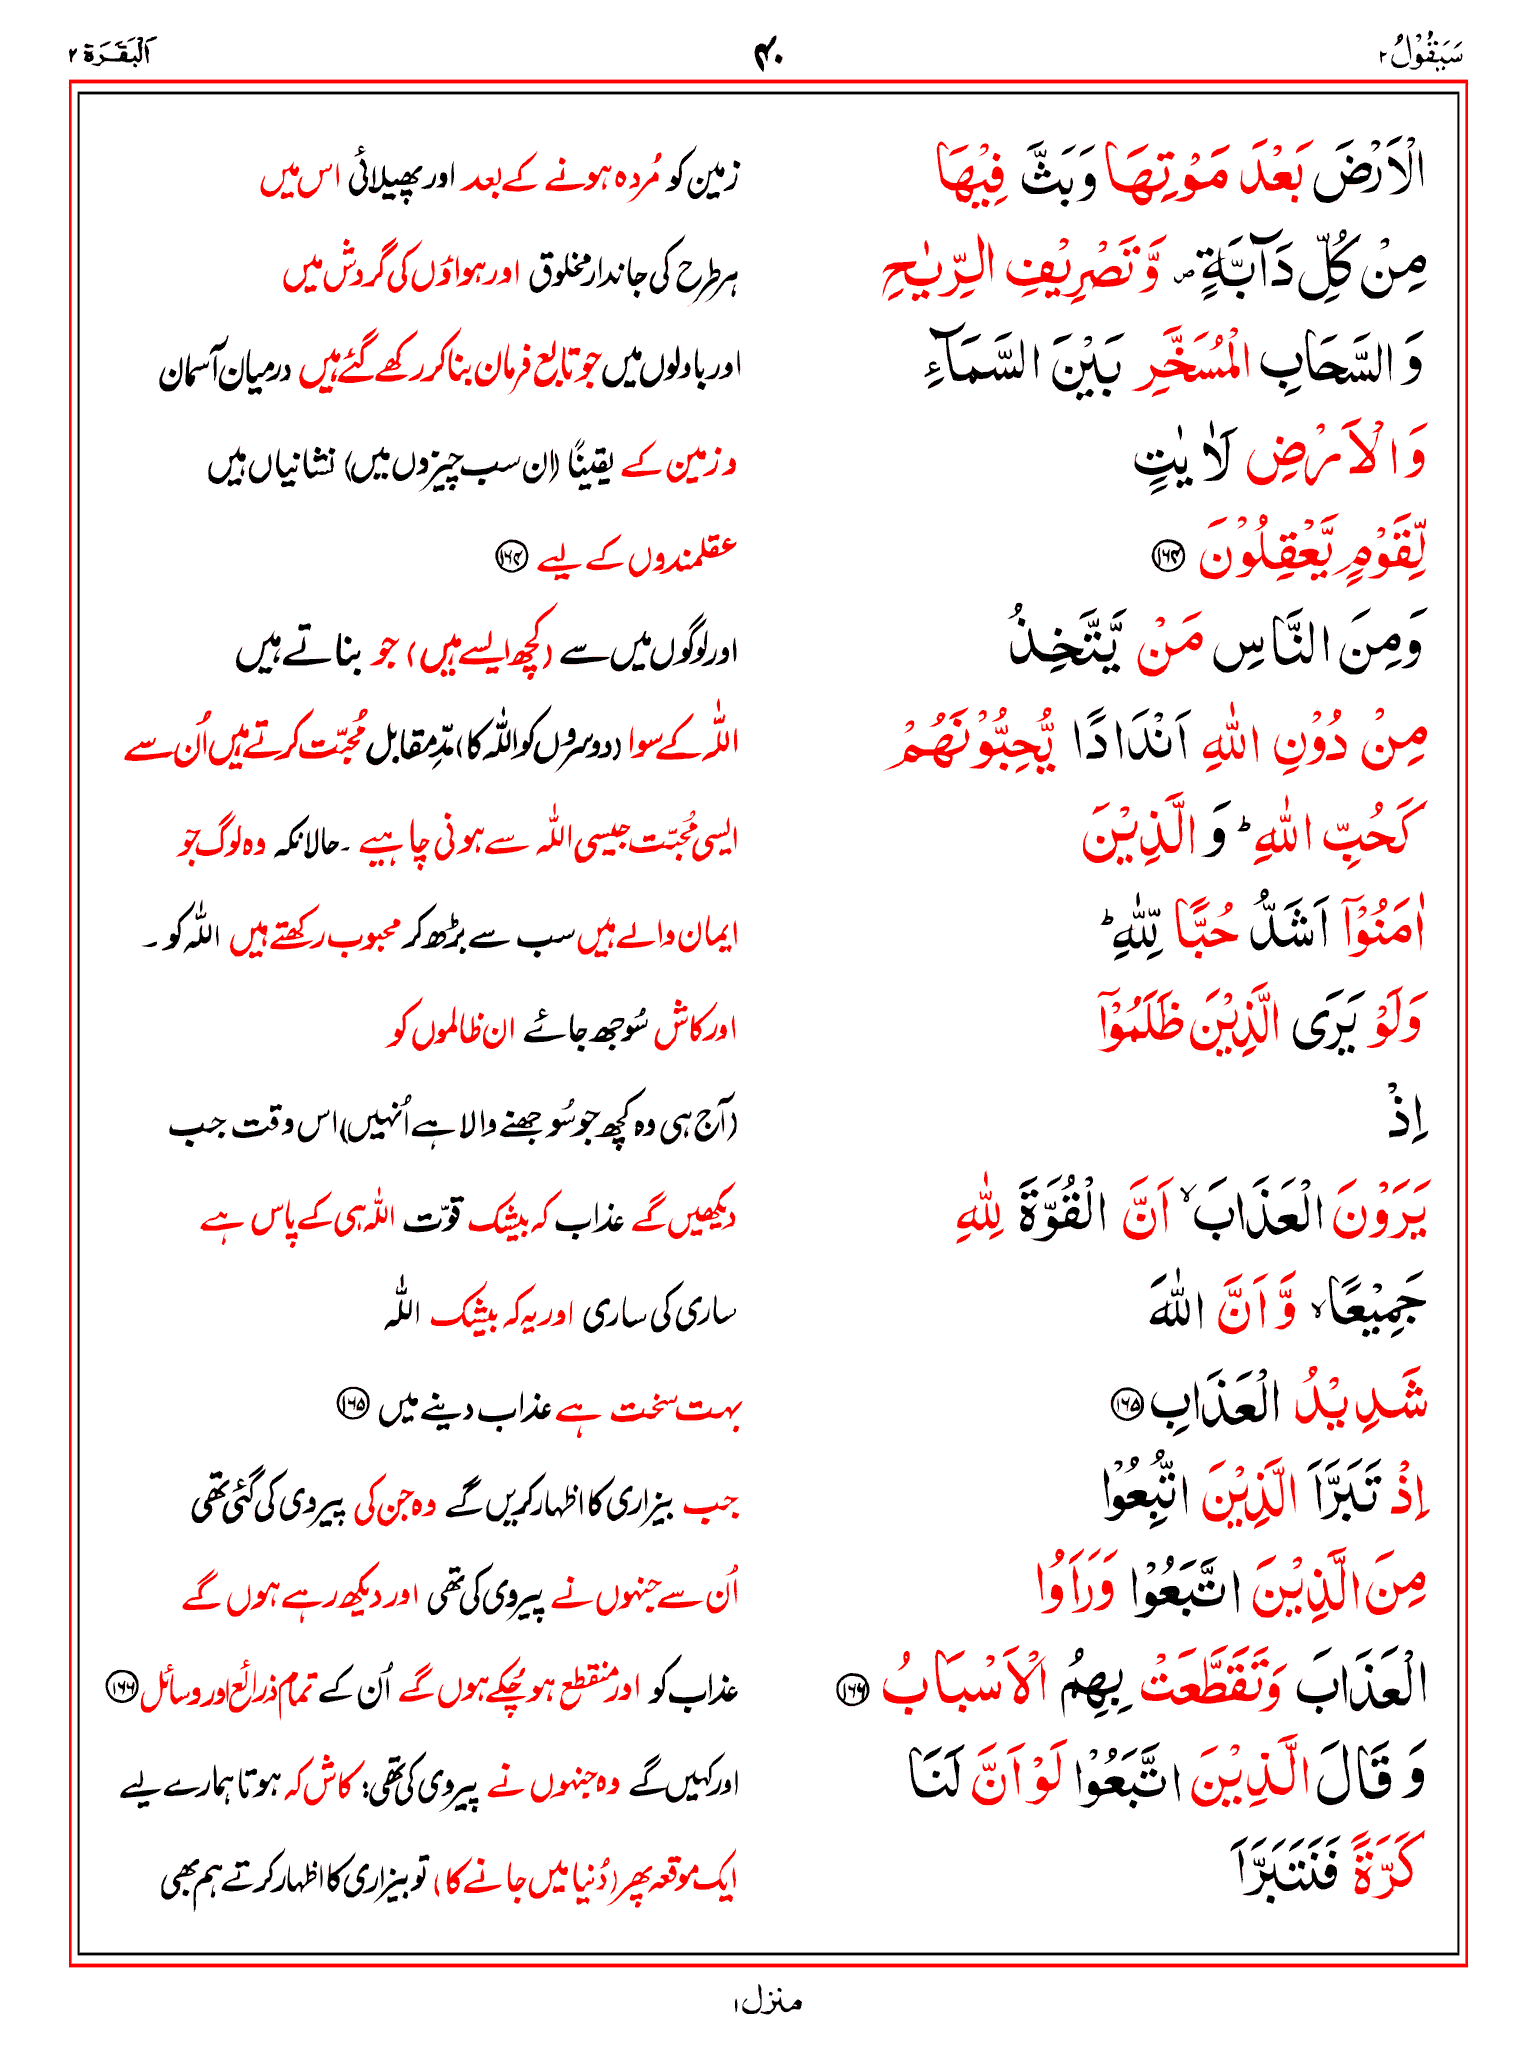 سَيَقُوْلُ ٢ ۴۰ اَلْبَقَرَة ٢
الْاَرْضَ بَعْدَ مَوْتِهَا وَبَثَّ فِيْهَا زمین کو مُردہ ہونے کے بعد اور پھیلائی اس میں
مِنْ كُلِّ دَآبَّةٍ ۪ وَّتَصْرِيْفِ الرِّيٰحِ ہر طرح کی جاندار مخلوق اور ہواؤں کی گردش میں
وَالسَّحَابِ الْمُسَخَّرِ بَيْنَ السَّمَآءِ اور بادلوں میں جو تابع فرمان بنا کر رکھے گئے ہیں درمیان آسمان
وَالْاَرْضِ لَاٰيٰتٍ و زمین کے یقیناً (ان سب چیزوں میں) نشانیاں ہیں
لِّقَوْمٍ يَّعْقِلُوْنَ ۝۱۶۴ عقلمندوں کے لیے ۝۱۶۴
وَمِنَ النَّاسِ مَنْ يَّتَّخِذُ اور لوگوں میں سے (کچھ ایسے ہیں) جو بناتے ہیں
مِنْ دُوْنِ اللّٰهِ اَنْدَادًا يُّحِبُّوْنَهُمْ اللّٰہ کے سوا (دوسروں کو اللّٰہ کا) مدِّمقابل مُحبّت کرتے ہیں اُن سے
كَحُبِّ اللّٰهِ ؕ وَالَّذِيْنَ ایسی مُحبّت جیسی اللّٰہ سے ہونی چاہیے ۔ حالانکہ وہ لوگ جو
اٰمَنُوْٓا اَشَدُّ حُبًّا لِّلّٰهِ ؕ ایمان والے ہیں سب سے بڑھ کر محبوب رکھتے ہیں اللّٰہ کو ۔
وَلَوْ يَرَى الَّذِيْنَ ظَلَمُوْٓا اور کاش سُوجھ جائے ان ظالموں کو
اِذْ (آج ہی وہ کچھ جو سُوجھنے والا ہے اُنہیں) اس وقت جب
يَرَوْنَ الْعَذَابَ ۙ اَنَّ الْقُوَّةَ لِلّٰهِ دیکھیں گے عذاب کہ بیشک قوّت اللّٰہ ہی کے پاس ہے
جَمِيْعًا ۙ وَّاَنَّ اللّٰهَ ساری کی ساری اور یہ کہ بیشک اللّٰہ
شَدِيْدُ الْعَذَابِ ۝۱۶۵ بہت سخت ہے عذاب دینے میں ۝۱۶۵
اِذْ تَبَرَّاَ الَّذِيْنَ اتُّبِعُوْا جب بیزاری کا اظہار کریں گے وہ جن کی پیروی کی گئی تھی
مِنَ الَّذِيْنَ اتَّبَعُوْا وَرَاَوُا اُن سے جنہوں نے پیروی کی تھی اور دیکھ رہے ہوں گے
الْعَذَابَ وَتَقَطَّعَتْ بِهِمُ الْاَسْبَابُ ۝۱۶۶ عذاب کو اور منقطع ہوچُکے ہوں گے اُن کے تمام ذرائع اور وسائل ۝۱۶۶
وَقَالَ الَّذِيْنَ اتَّبَعُوْا لَوْ اَنَّ لَنَا اور کہیں گے وہ جنہوں نے پیروی کی تھی: کاش کہ ہوتا ہمارے لیے
كَرَّةً فَنَتَبَرَّاَ ایک موقعہ پھر (دُنیا میں جانے کا) تو بیزاری کا اظہار کرتے ہم بھی
منزل ۱